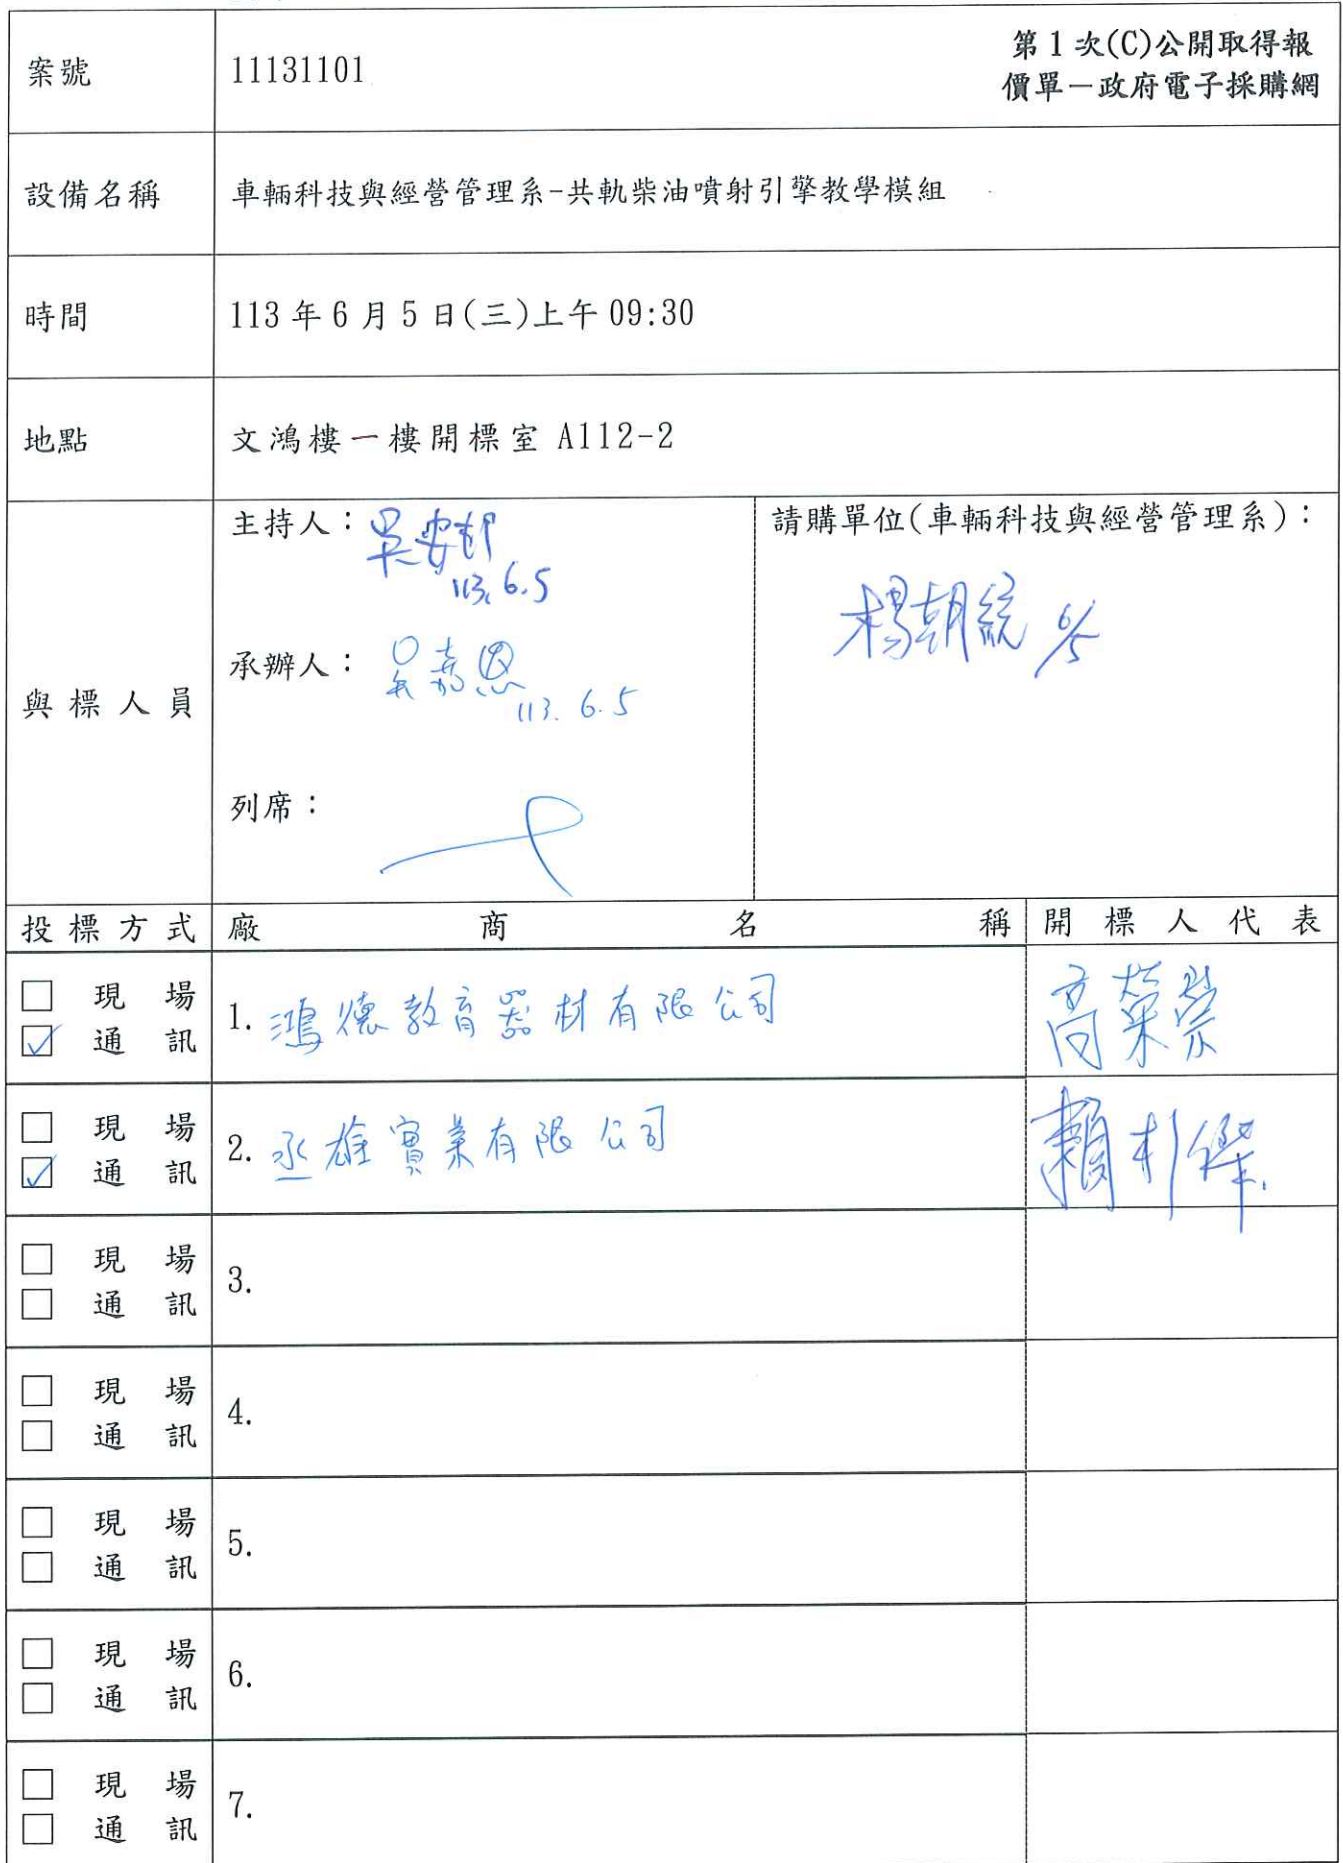 案號
11131101
第1次(C)公開取得報
價單－政府電子採購網
設備名稱
車輛科技與經營管理系-共軌柴油噴射引擎教學模組
時間
113年6月5日(三)上午09:30
地點
文鴻樓一樓開標室 A112-2
與標人員
主持人：吳安
113.6.5
承辦人：吳嘉恩
113.6.5
列席：
請購單位(車輛科技與經營管理系)：
楊朝統 6/5
投標方式 廠商名稱 開標人代表
□ 現場
☑ 通訊
1. 鴻德教育器材有限公司
高榮崇
□ 現場
☑ 通訊
2. 丞雄實業有限公司
賴杉
□ 現場
□ 通訊
3.
□ 現場
□ 通訊
4.
□ 現場
□ 通訊
5.
□ 現場
□ 通訊
6.
□ 現場
□ 通訊
7.